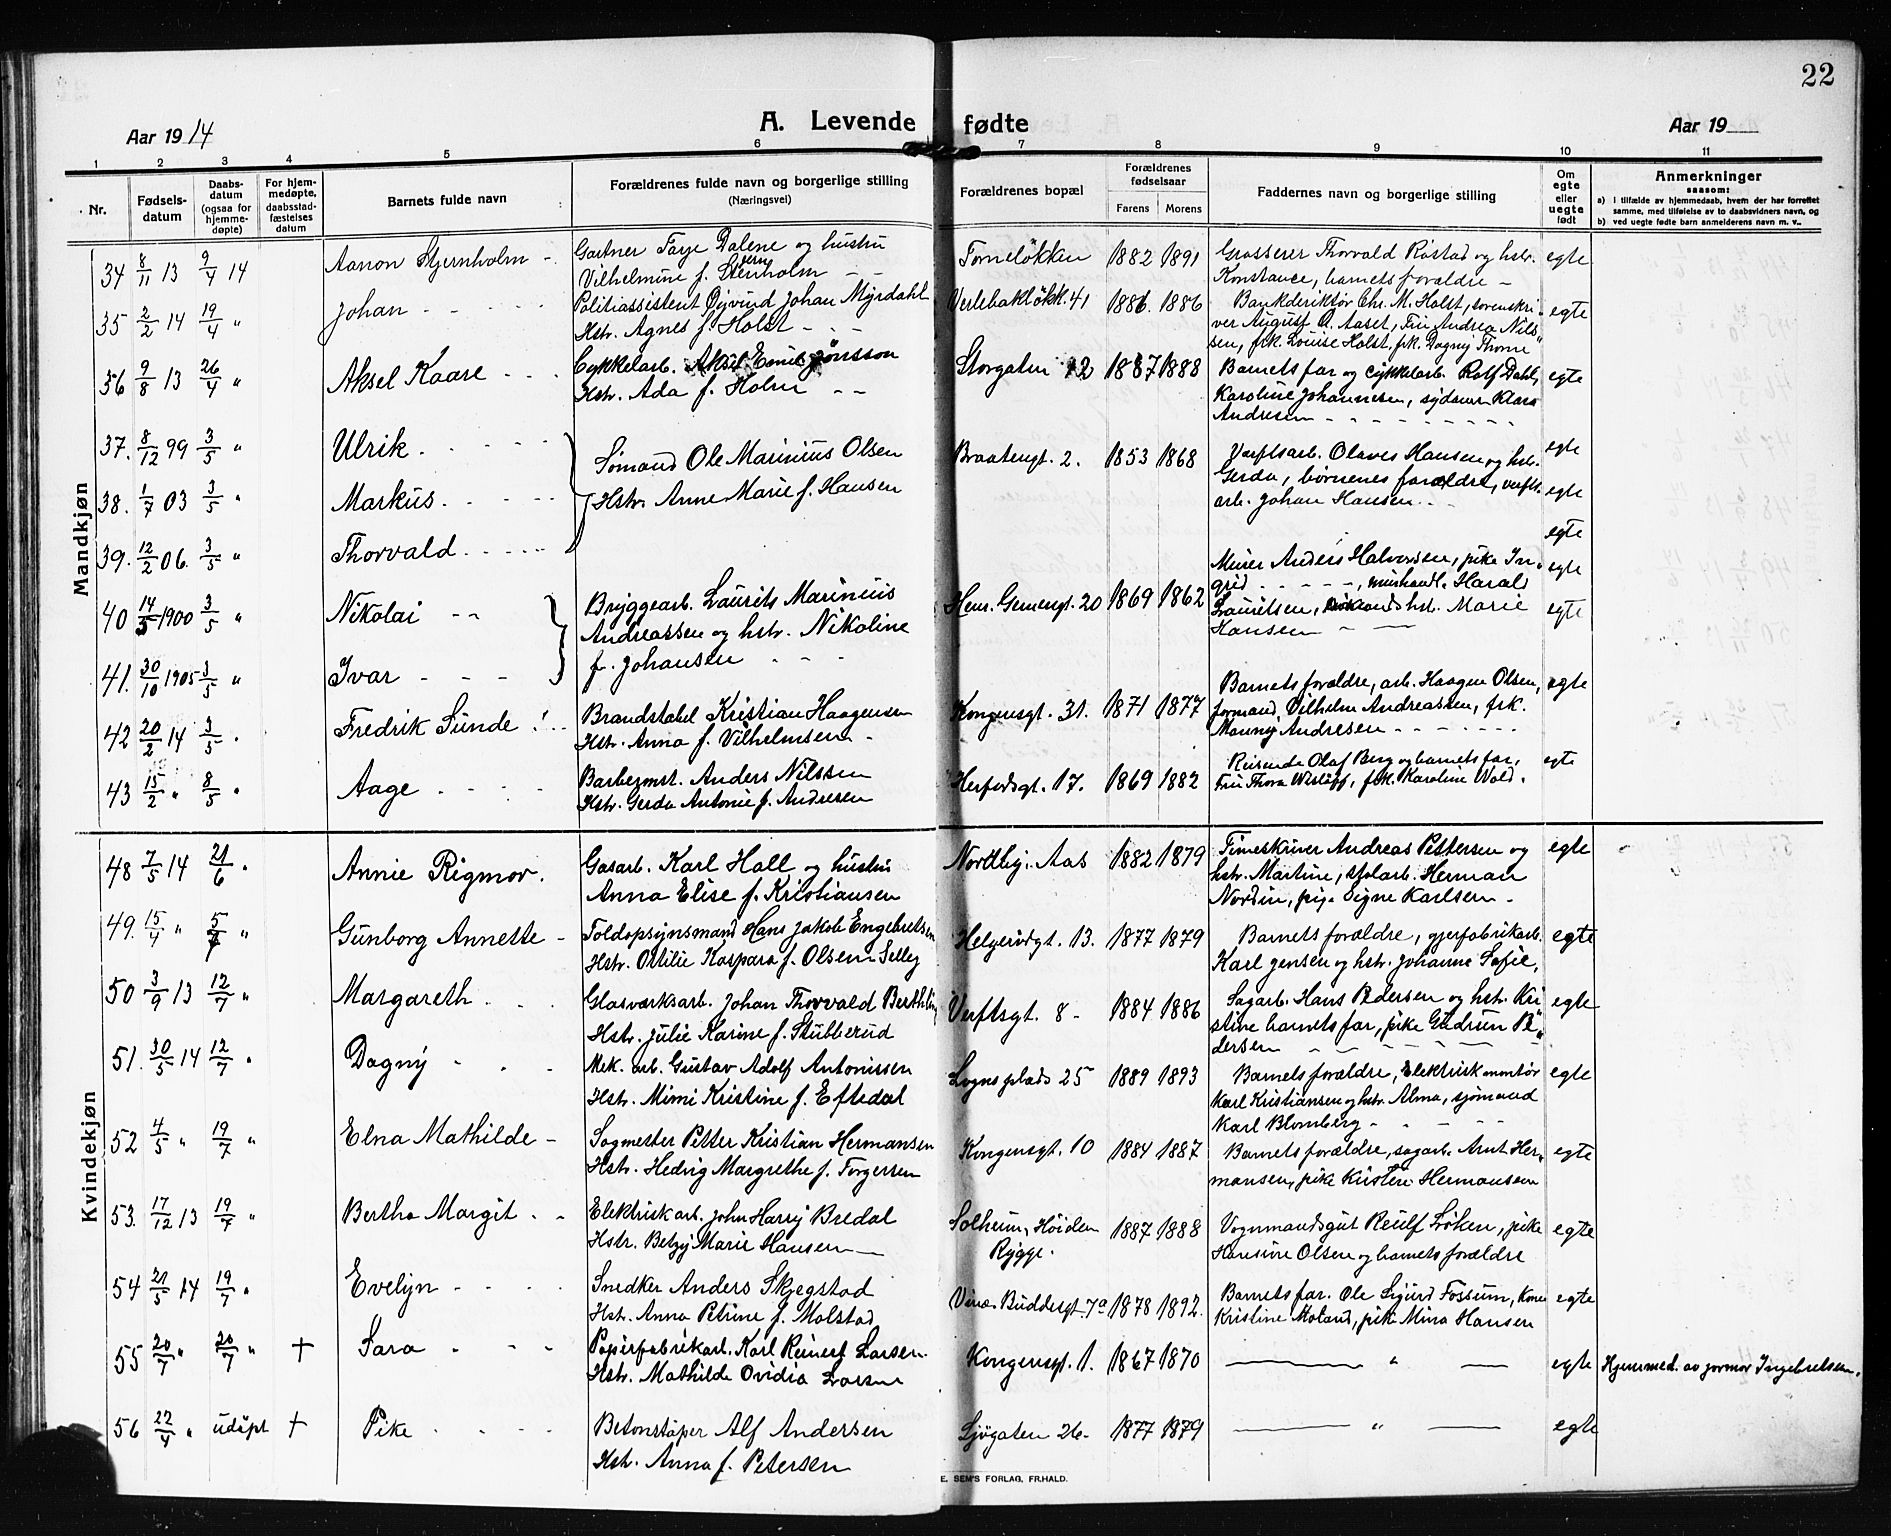 22
Aar 1914
A. Levende fødte
Aar 19
1 2 3 4 5 6 7 8 9 10 11
Nr.
Fødsels-
datum
Daabs-
datum
(ogsaa for
hjemme-
døpte)
For hjem-
medøpte,
daabsstad-
fæstelses
datum
Barnets fulde navn
Forældrenes fulde navn og borgerlige stilling
(Næringsvei)
Forældrenes bopæl
Forældrenes
fødselsaar
Farens Morens
Faddernes navn og borgerlige stilling
Om
egte
eller
uegte
født
Anmerkninger
saasom:
a) i tilfælde av hjemmedaab, hvem der har forrettet
samme, med tilføielse av to daabsvidners navn, og
b) ved uegte fødte barn anmelderens navn m. v..
Mandkjøn
34 8/11 13 9/4 14 Aanon Stjernholm - Gartner Tarje Dalene og hustru
Vilhelmine f. Stjernholm - - Torneløkken 1882 1891 Grosserer Thorvald Røstad og hstr.
Konstance, barnets forældre - egte
35 2/2 14 19/4 " Johan - - - - Politiassistent Øyvind Johan Myrdahl
Hstr. Agnes f. Holst - - - Verlebakløkk. 41 1886. 1886 Bankderiktør Chr. M. Holst, sorenskri-
ver August O. Aaset, Fru Andrea Nils-
sen, frk. Louise Holst, frk. Dagny Thorne egte
36 9/8 13 26/4 " Aksel Kaare - - - Cykkelarb. Aksel Emil Jönsson
Hstr. Ada f. Holm - - Storgaten 12 1887 1888 Barnets far og cykkelarb. Rolf Dahl,
Karoline Johannesen, sydame Klara
Andresen - - - egte
37. 8/12 99 3/5 " Ulrik. - - - Sømand Ole Marinius Olsen
Hstr. Anne Marie f. Hansen Braatengt. 2. 1853 1868 Verftsarb. Olaves Hansen og hstr.
Gerda, børnenes forældre, verfts
arb. Johan Hansen - - egte
38. 1/7 03 3/5 " Markus. - - - egte
39. 12/2 06. 3/5 " Thorvald - - - egte
40 14/5 1900 3/5 " Nikolai - - Bryggearb. Laurits Marinius
Andreassen og hstr. Nikoline
f. Johansen - - - Henr. Gernergt. 20 1869 1862 Murer Anders Halvorsen, pike In-
grid - - - -, murhandl. Harald
Lauritsen, hstr. Marie
Hansen - - egte
egte
41. 30/10 1905 3/5 " Ivar - - -
42 20/2 14 3/5 " Fredrik Sunde ! - Brandstabel Kristian Haagensen
Hstr. Anna f. Vilhelmsen - Kongensgt. 31. 1871 1877 Barnets forældre, arb. Haagen Olsen,
formand, Vilhelm Andreassen, frk.
Andresen - - - egte
43 15/2 " 8/5 " Aage - - - - Barbermst. Anders Nilssen
Hstr. Gerda Antonie f. Andresen Herfødsgt. 17. 1869 1882 Reisende Olaf Berg og barnets far,
Fru Thora, frk. Karoline Wold. egte
Kvindekjøn
48 7/5 14 21/6 " Annie Rigmor. Gasarb. Karl Hall og hustru
Anna Elise f. Kristiansen Nordby. Aas 1882 1879 Timeskriver Andreas Pettersen og
hstr. Martine, Herman
Nordin, pige Signe Karlsen - egte
49. 15/4 " 5/7 " Gunborg Annette - Toldopsynsmand Hans Jakob Engebretsen
Hstr. Ottilie Kaspara f. Olsen-Selley Helgerødgt. 13. 1877 1879 Barnets forældre, gjerfabrikarb.
Karl Jensen og hstr. Johanne Sofie, egte
50 3/9 13 12/7 " Margareth - - Glasværksarb. Johan Thorvald Berthling
Hstr. Julie Karine f. Stubberud Verftsgt. 8 - 1884 1886 Sagarb. Hans Pedersen og hstr. Kri
stine barnets far, pike Gudrun Pe
dersen - - - egte
51. 30/5 14 12/7 " Dagny - - - Mek. arb. Gustav Adolf Antonissen
Hstr. Mimi Kristine f. Eftedal Logns plads 25 1889 1893 Barnets forældre, Elektriskmontör
Karl Kristiansen og hstr. Alma, sjömand
Karl Blomberg - - - egte
52 4/5 " 19/7 " Elna Mathilde - Sagmester Petter Kristian Hermansen
Hstr. Hedvig Margrethe f. Torgersen Kongensgt. 10 1884 1887 Barnets forældre, sagarb. Arnt Her-
mansen, pike Kristen Hermansen egte
53. 17/12 13 19/7 " Bertha Margit. - - Elektriskarb. John Harry Bredal
Hstr. Betzy Marie Hansen - Solheim, Høiden
Rygge. 1887 1888 Vognmandsgut Reulf Løken, pike
Hansine Olsen og barnets forældre egte
54 21/5 14 19/7 " Evelyn - - - - Snedker Anders Skjegstad
Hstr. Anna Petrine f. Molstad Vinc. Buddesgt. 7a 1878 1892. Barnets far. Ole Sigurd Fossum, Kone
Kristine Moland, pike Mina Hansen egte
55 20/7 " 20/7 " + Sara - - - Papirfabrikarb. Karl Reinert Larsen
Hstr. Mathilde Ovidia Larsen Kongensgt. 1. 1867 1870 — " — egte Hjemmed. av jormor Ingebretsen.
56 22/4 " udöpt + Pike - - - - Betonstøper Alf Andersen
Hstr. Anna f. Petersen Sjøgaten 26- 1877 1879 — " — egte
E. SEM'S FORLAG, FR.HALD.